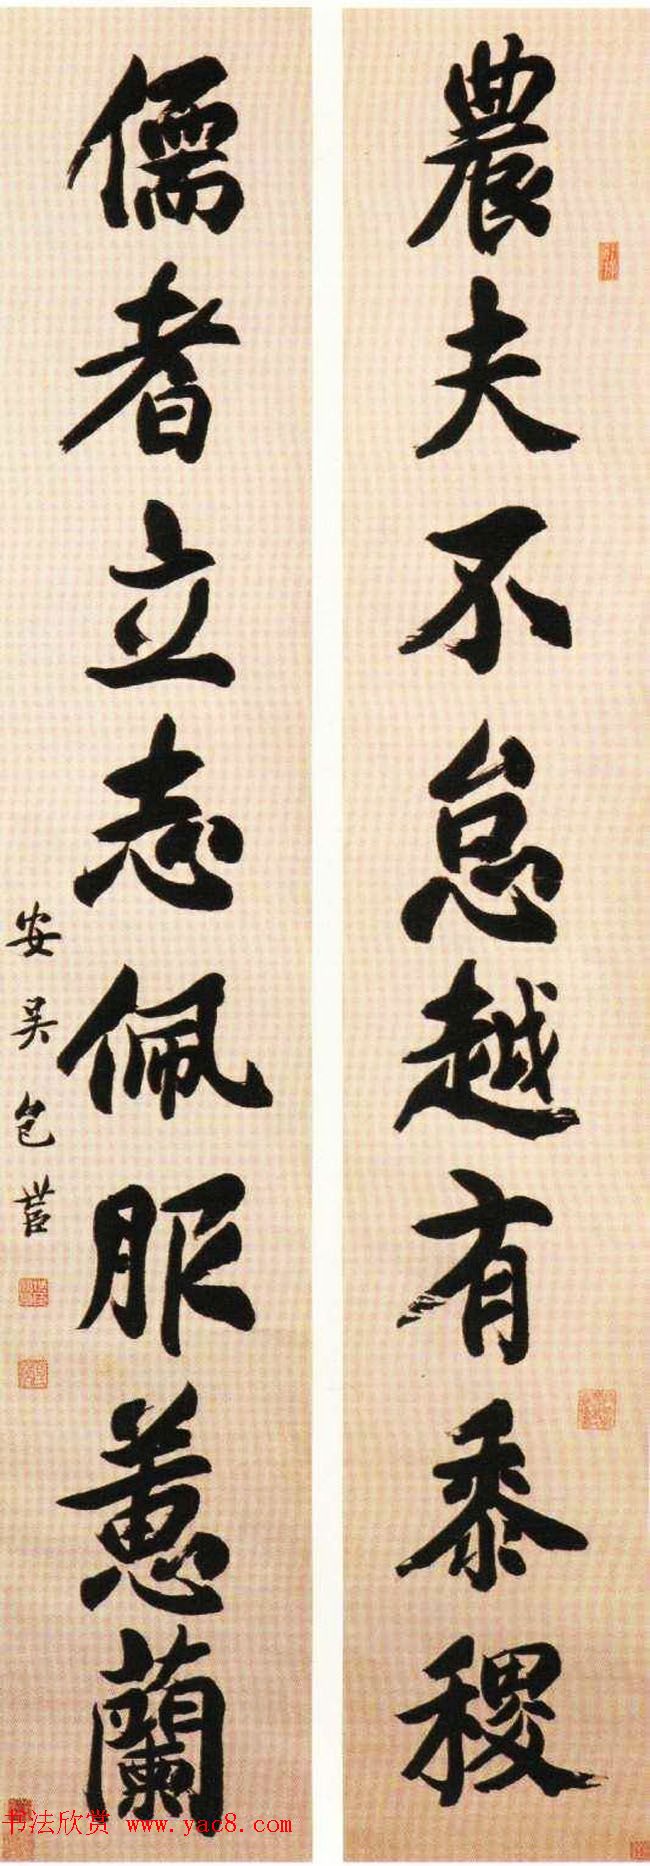 農夫不怠越有黍稷
儒者立志佩服蕙蘭
安吳包世臣
书法欣赏 www.yac8.com